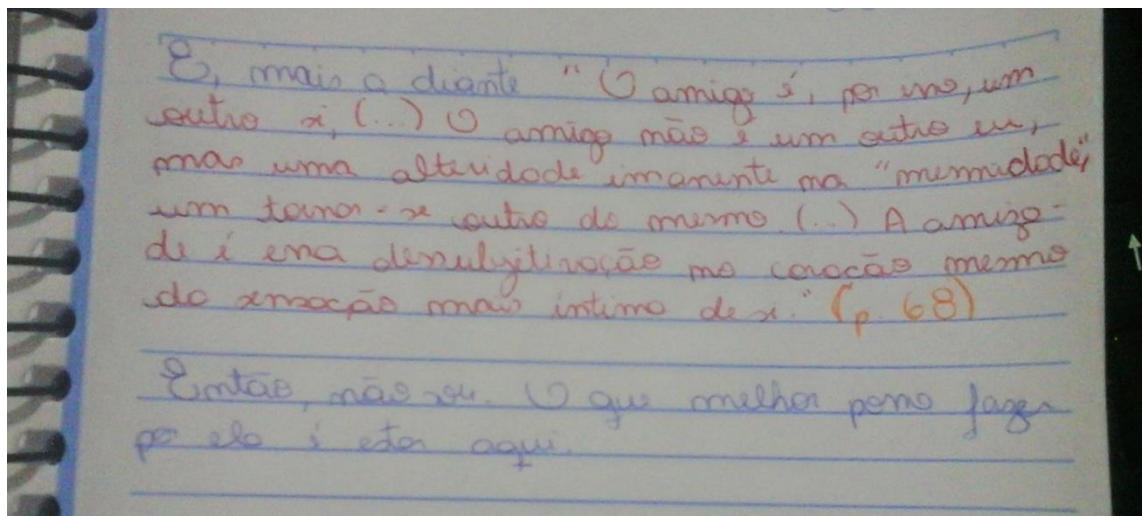 E, mais a diante "O amigo é, por isso, um
outro si, (...) O amigo não é um outro eu,
mas uma alteridade imanente na "mesmidade",
um tornar-se outro do mesmo. (...) A amiza-
de é essa dessubjetivação no coração mesmo
da sensação mais íntima de si." (p. 68)
Então, não sou. O que melhor posso fazer
por ela é estar aqui.